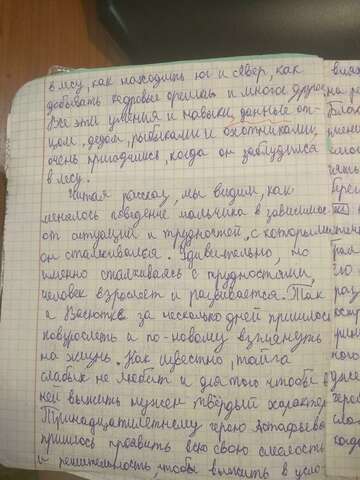 в лесу, как находить юг и север, как
добывать кедровые орешки и многое другое
Все эти умения и навыки, данные от-
цом, дедом, рыбаками и охотниками,
очень пригодились, когда он заблудился
в лесу.
Читая рассказ, мы видим, как
менялось поведение мальчика в зависимос-
от ситуации и трудностей, с которыми
он сталкивался. Удивительно, но
именно сталкиваясь с трудностями,
человек взрослеет и развивается. Так
и Васютке за несколько дней пришлось
повзрослеть и по-новому взглянуть
на жизнь. Как известно, тайга
слабых не любит и для того чтобы в
ней выжить нужен твёрдый характер.
Тринадцатилетнему герою Астафьева
пришлось проявить всю свою смелость
и решительность, чтобы выжить в усло-